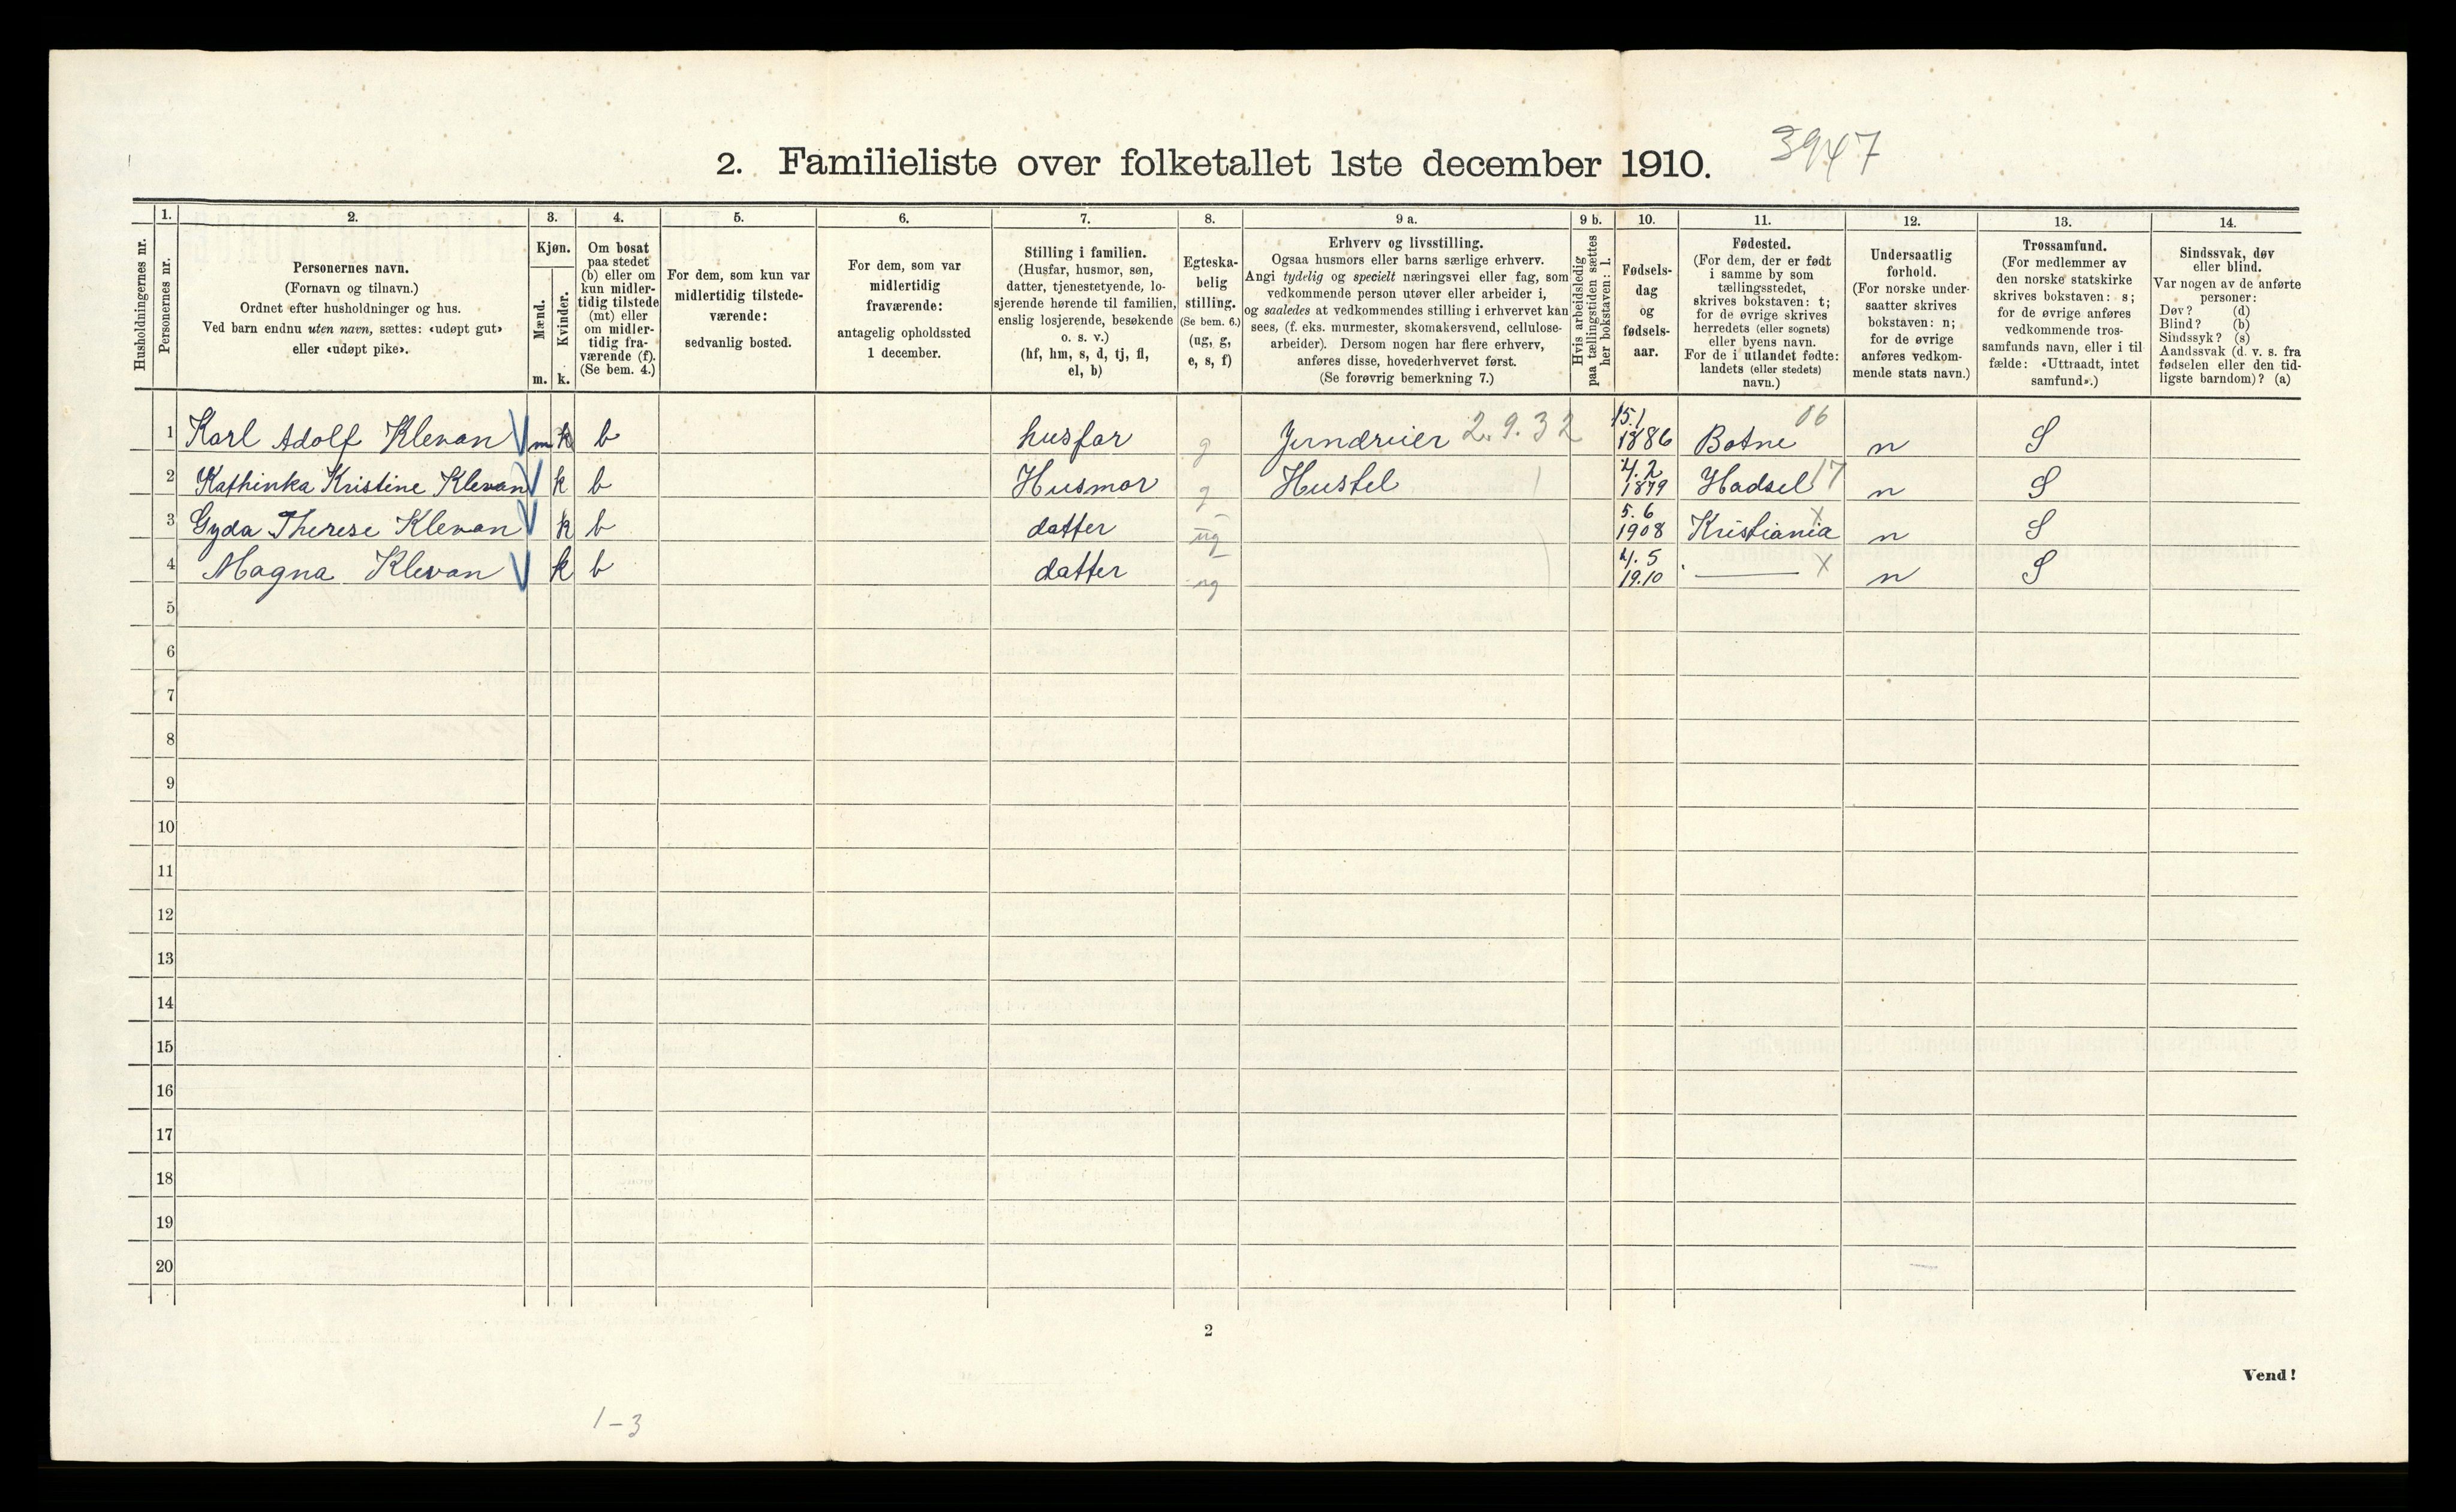 2. Familieliste over folketallet 1ste december 1910. 3947
1. 2. 3. 4. 5. 6. 7. 8. 9 a. 9 b. 10. 11. 12. 13. 14.
Husholdningernes nr.
Personernes nr.
Personernes navn.
(Fornavn og tilnavn.)
Ordnet efter husholdninger og hus.
Ved barn endnu uten navn, sættes: «udøpt gut»
eller «udøpt pike».
Kjøn.
Mænd.
m.
Kvinder.
k.
Om bosat
paa stedet
(b) eller om
kun midler-
tidig tilstede
(mt) eller
om midler-
tidig fra-
værende (f).
(Se bem. 4.)
For dem, som kun var
midlertidig tilstede-
værende:
sedvanlig bosted.
For dem, som var
midlertidig
fraværende:
antagelig opholdssted
1 december.
Stilling i familien.
(Husfar, husmor, søn,
datter, tjenestetyende, lo-
sjerende hørende til familien,
enslig losjerende, besøkende
o. s. v.)
(hf, hm, s, d, tj, fl,
el, b)
Egteska-
belig
stilling.
(Se bem. 6.)
(ug, g,
e, s, f)
Erhverv og livsstilling.
Ogsaa husmors eller barns særlige erhverv.
Angi tydelig og specielt næringsvei eller fag, som
vedkommende person utøver eller arbeider i,
og saaledes at vedkommendes stilling i erhvervet kan
sees, (f. eks. murmester, skomakersvend, cellulose-
arbeider). Dersom nogen har flere erhverv,
anføres disse, hovederhvervet først.
(Se forøvrig bemerkning 7.)
Hvis arbeidsledig
paa tællingstiden sættes
her bokstaven: l.
Fødsels-
dag
og
fødsels-
aar.
Fødested.
(For dem, der er født
i samme by som
tællingsstedet,
skrives bokstaven: t;
for de øvrige skrives
herredets (eller sognets)
eller byens navn.
For de i utlandet fødte:
landets (eller stedets)
navn.)
Undersaatlig
forhold.
(For norske under-
saatter skrives
bokstaven: n;
for de øvrige
anføres vedkom-
mende stats navn.)
Trossamfund.
(For medlemmer av
den norske statskirke
skrives bokstaven: s;
for de øvrige anføres
vedkommende tros-
samfunds navn, eller i til
fælde: «Uttraadt, intet
samfund».)
Sindssvak, døv
eller blind.
Var nogen av de anførte
personer:
Døv? (d)
Blind? (b)
Sindssyk? (s)
Aandssvak (d. v. s. fra
fødselen eller den tid-
ligste barndom)? (a)
1 Karl Adolf Klevan m k b husfar g Jerndreier 2.9.32 15.1 1886 Botne 06 n S
2 Kathinka Kristine Klevan k b Husmor g Hustel 4.2 1879 Hadsel 17 n S
3 Gyda Therese Klevan k b datter ug 5.6 1908 Kristiania x n S
4 Magna Klevan k b datter ug 4.5 19.10 — x n S
5
6
7
8
9
10
11
12
13
14
15
16
17
18
19
20
2
Vend!
1-3